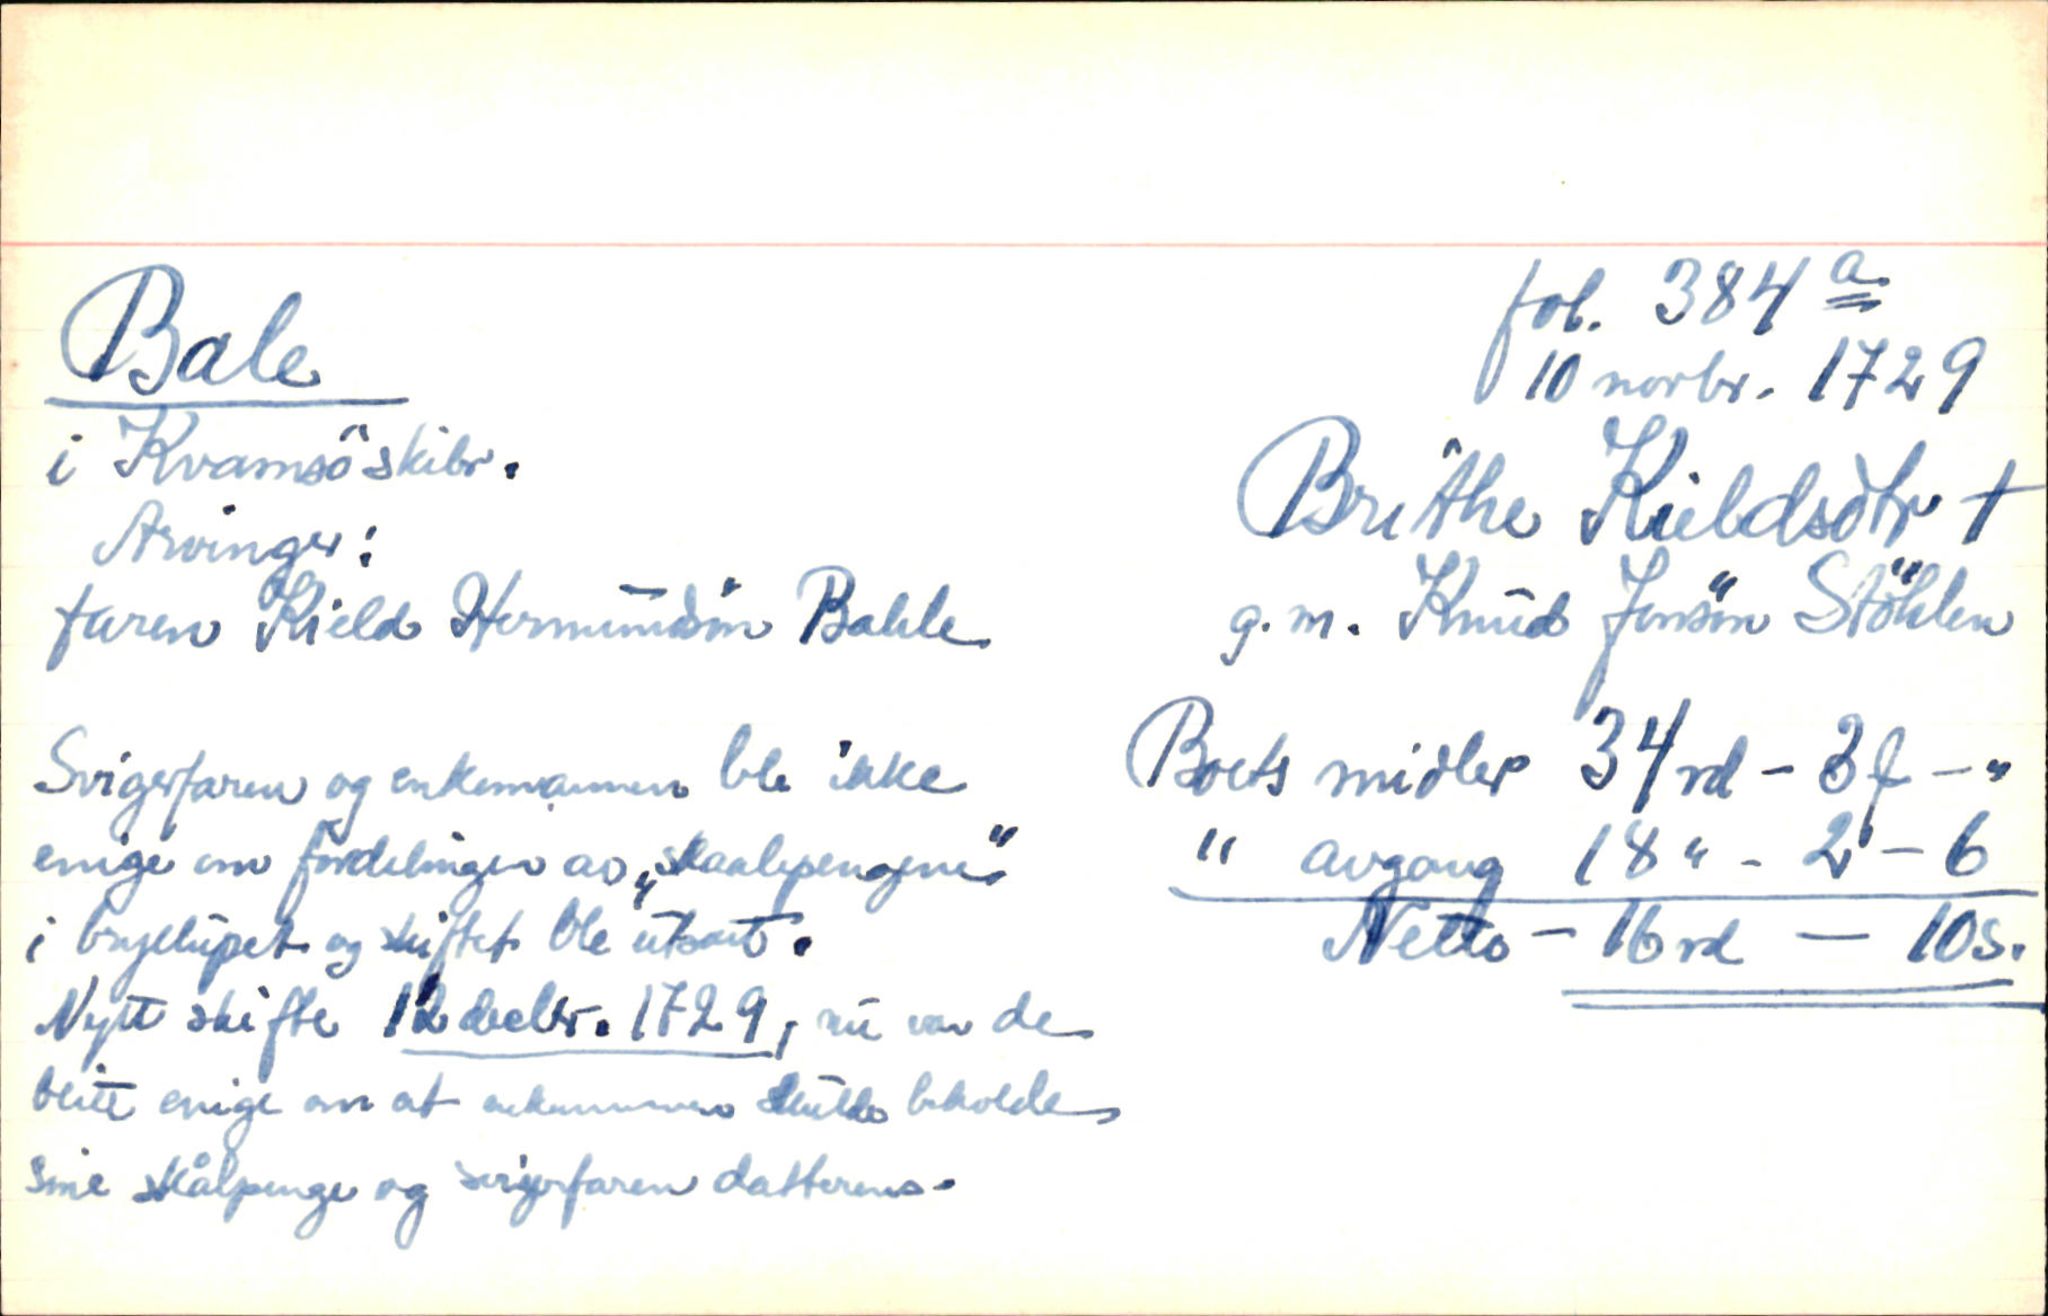 Bale
i Kvamsöskibr.
Arvinger:
faren Kield Hermundsøn Bahle
Svigerfaren og enkemannen ble ikke
enige om fordelingen av „skaalepengene"
i bryllupet og skiftet ble utsatt.
Nytt skifte 12 decbr. 1729, nu var de
blitt enige om at enkemannen skulde beholde
sine skålpenge og svigerfaren datterens.
fol. 384 a
10 novbr. 1729
Brithe Kieldsdtr †
g. m. Knud Jonsön Stöhlen
Boets midler 34 rd - 3 f - "
" avgang 18 " - 2 - 6
Netto - 16 rd — 10 s.